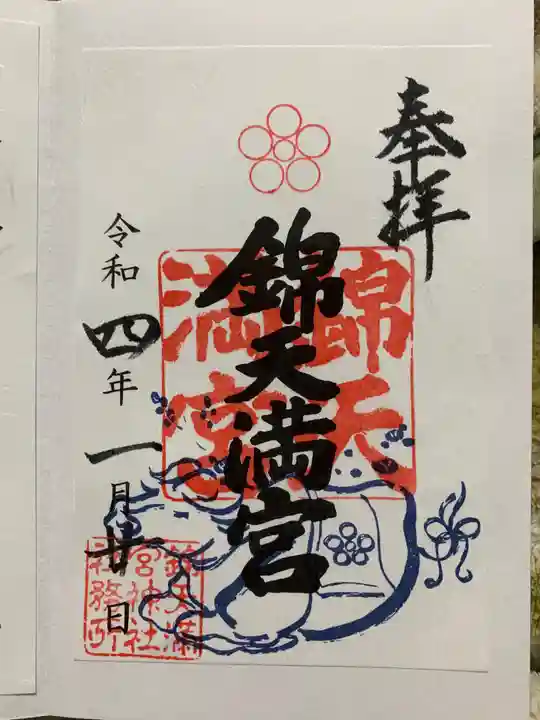 奉拝
錦天満宮
錦天
満宮
令和四年一月廿日
錦天滿
宮神社
社務所